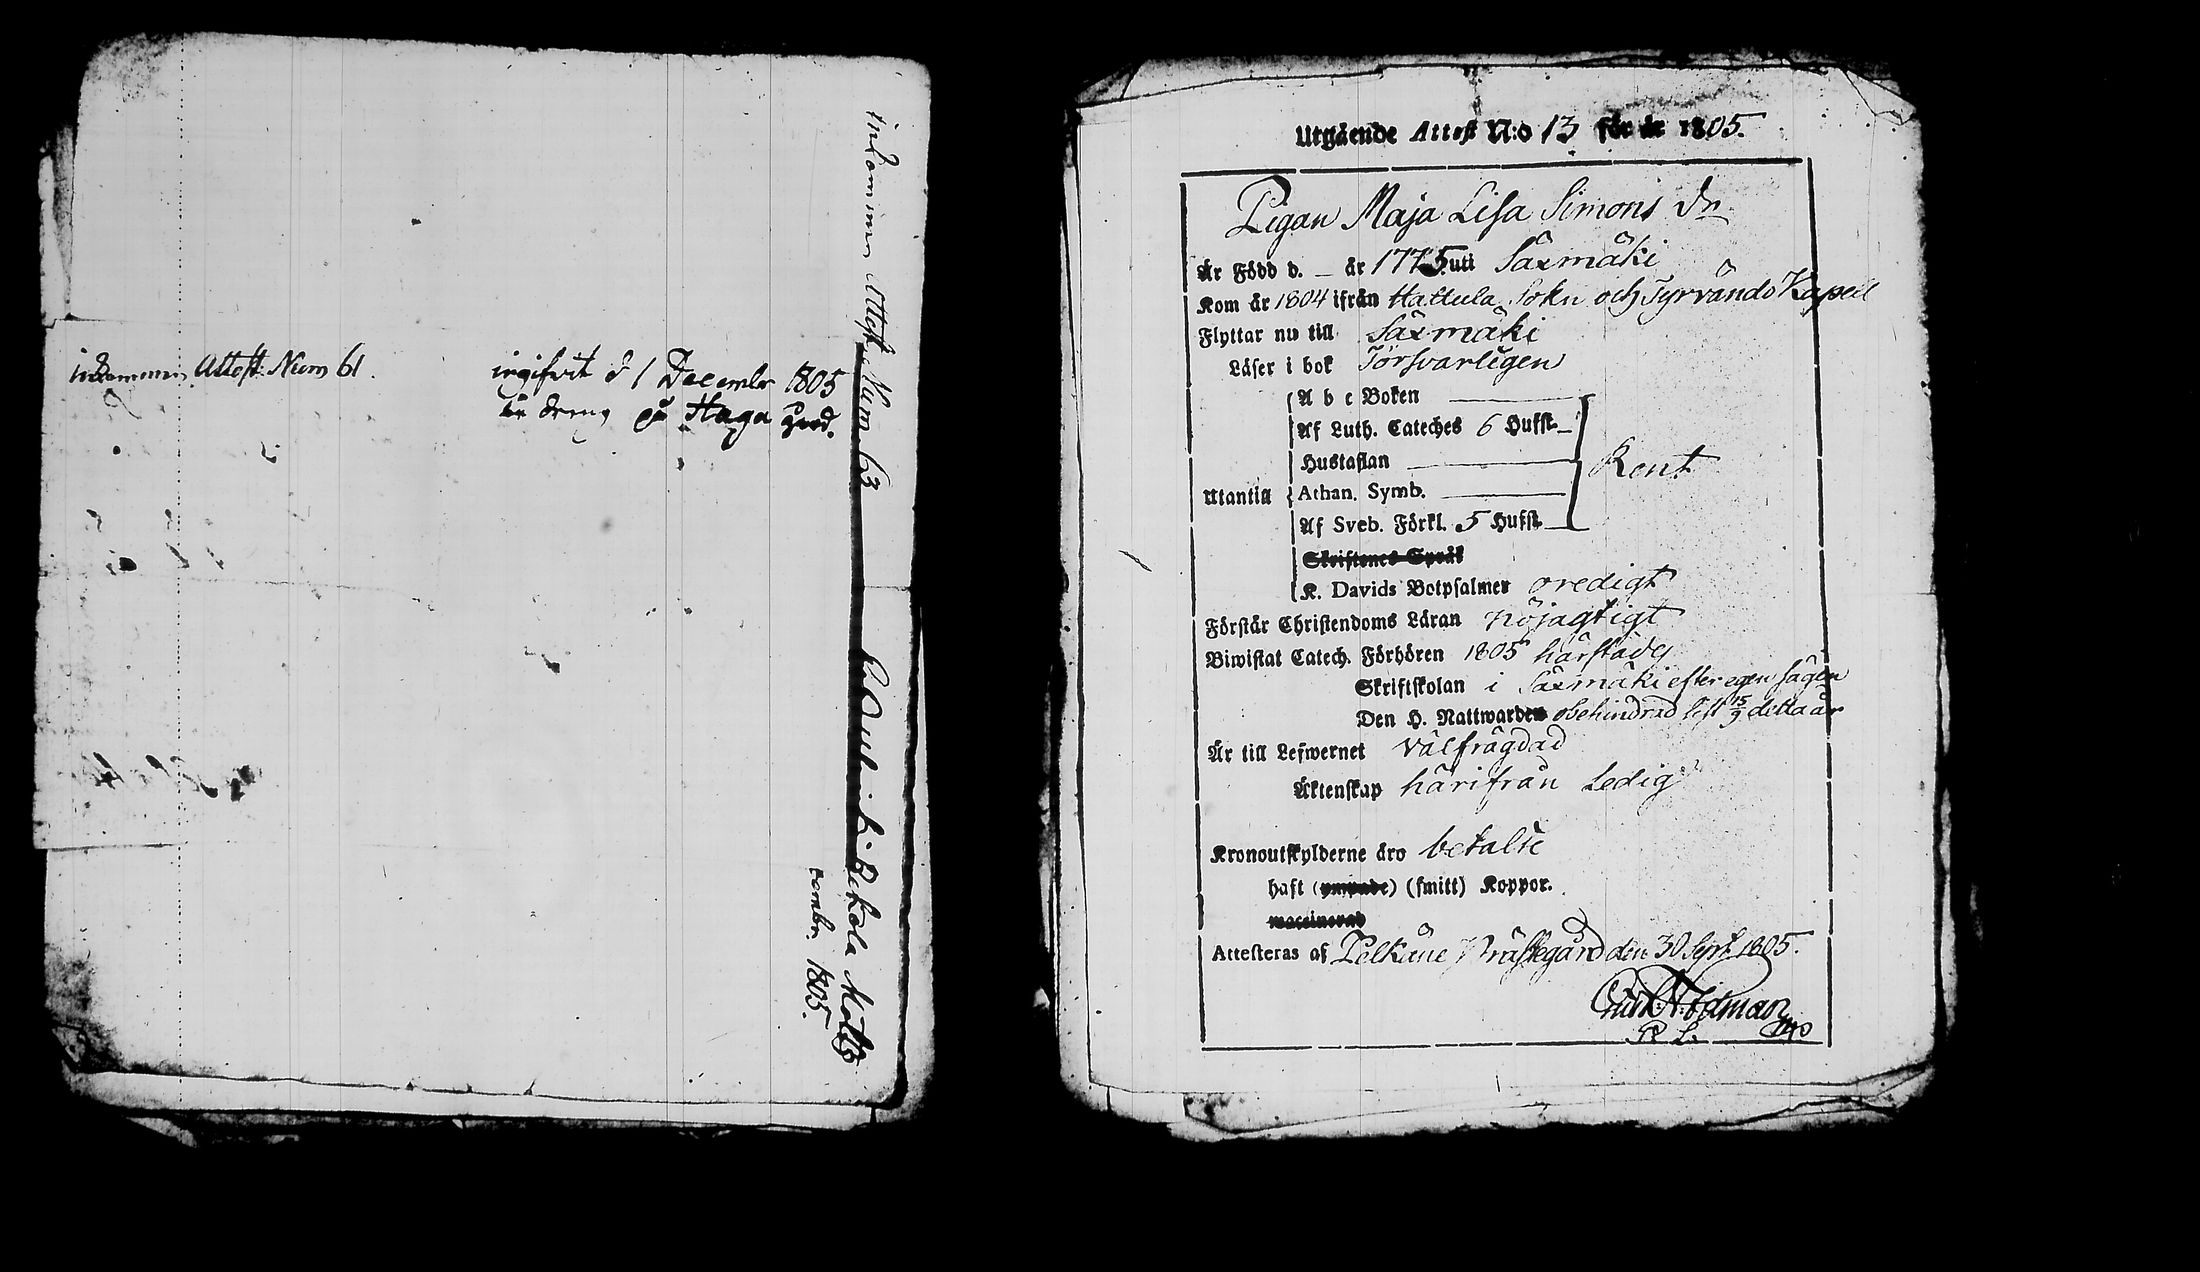 inkommen Attest: Num 61.
ingifvit d 1 December 1805
är dreng på Haga gård.
inkommen Attest. Num 63
Rekola Matts
cembr. 1805.
Utgående Attest N:o 13 för år 1805.
Pigan Maja Lisa Simons dr
Är Född d. _ år 1775 uti Säxmäki
Kom år 1804 ifrån Hattula Sokn och Tyrvändö Kapell
Flyttar nu till Säxmäki
Läser i bok Försvarligen
A b c Boken
Af Luth. Cateches 6 Hufst.
Hustaflan
Rent
Utantill Athan. Symb.
Af Sveb. Förkl. 5 Hufst.
Skriftenes Språk
K. Davids Botpsalmer oredigt
Förstår Christendoms Läran nöjagtigt
Biwistat Catech. Förhören 1805 härstädes
Skriftskolan i Säxmäki efter egen sägen
Den H. Nattwarden obehindrad sist 15/9 detta år
Är till Lefwernet välfrägdad
Äktenskap härifrån Ledig
Kronoutskylderne äro betalte
haft (ympade) (smitt) Koppor.
waccinerad
Attesteras af Pelkäne Prästegård den 30 Sept. 1805.
P. L.